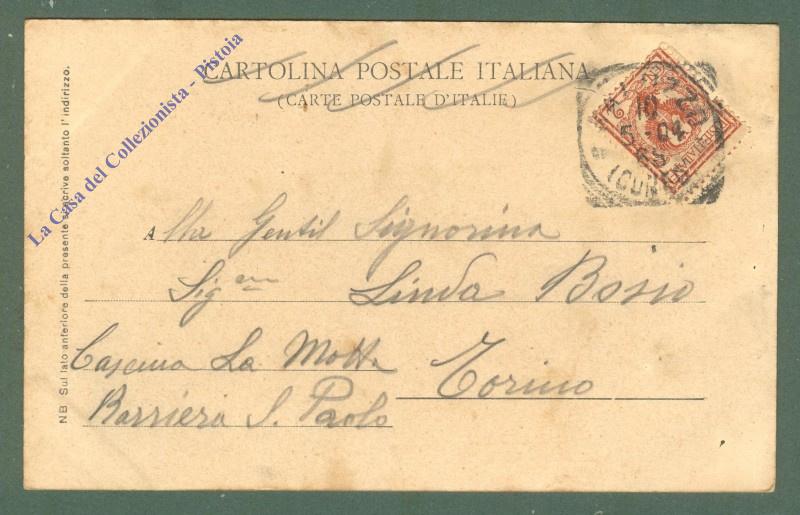 CARTOLINA POSTALE ITALIANA
(CARTE POSTALE D'ITALIE)
10
5-04
(CUNEO)
Alla Gentil Signorina
Sig na Linda Bosio
Cascina La Motta Torino
Barriera S. Paolo
NB Sul lato anteriore della presente si scrive soltanto l'indirizzo.
La Casa del Collezionista - Pistoia